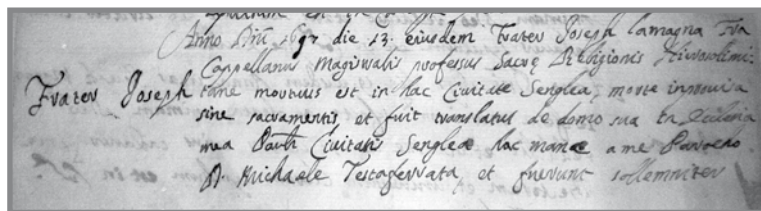 Anno Dñi 1697 die 13. eiusdem Frater Joseph Camagna Fra
Cappellanus Magistralis professus Sacrę Religionis Hierosolimi:
Frater Joseph tane mortuus est in hac Civitate Senglea, morte improvisa
sine sacramentis, et fuit translatus de domo sua in Ecclesia
mea Civitatis Sengleæ hac mane a me Parocho
D. Michaele Testaferrata et fuerunt sollemniter